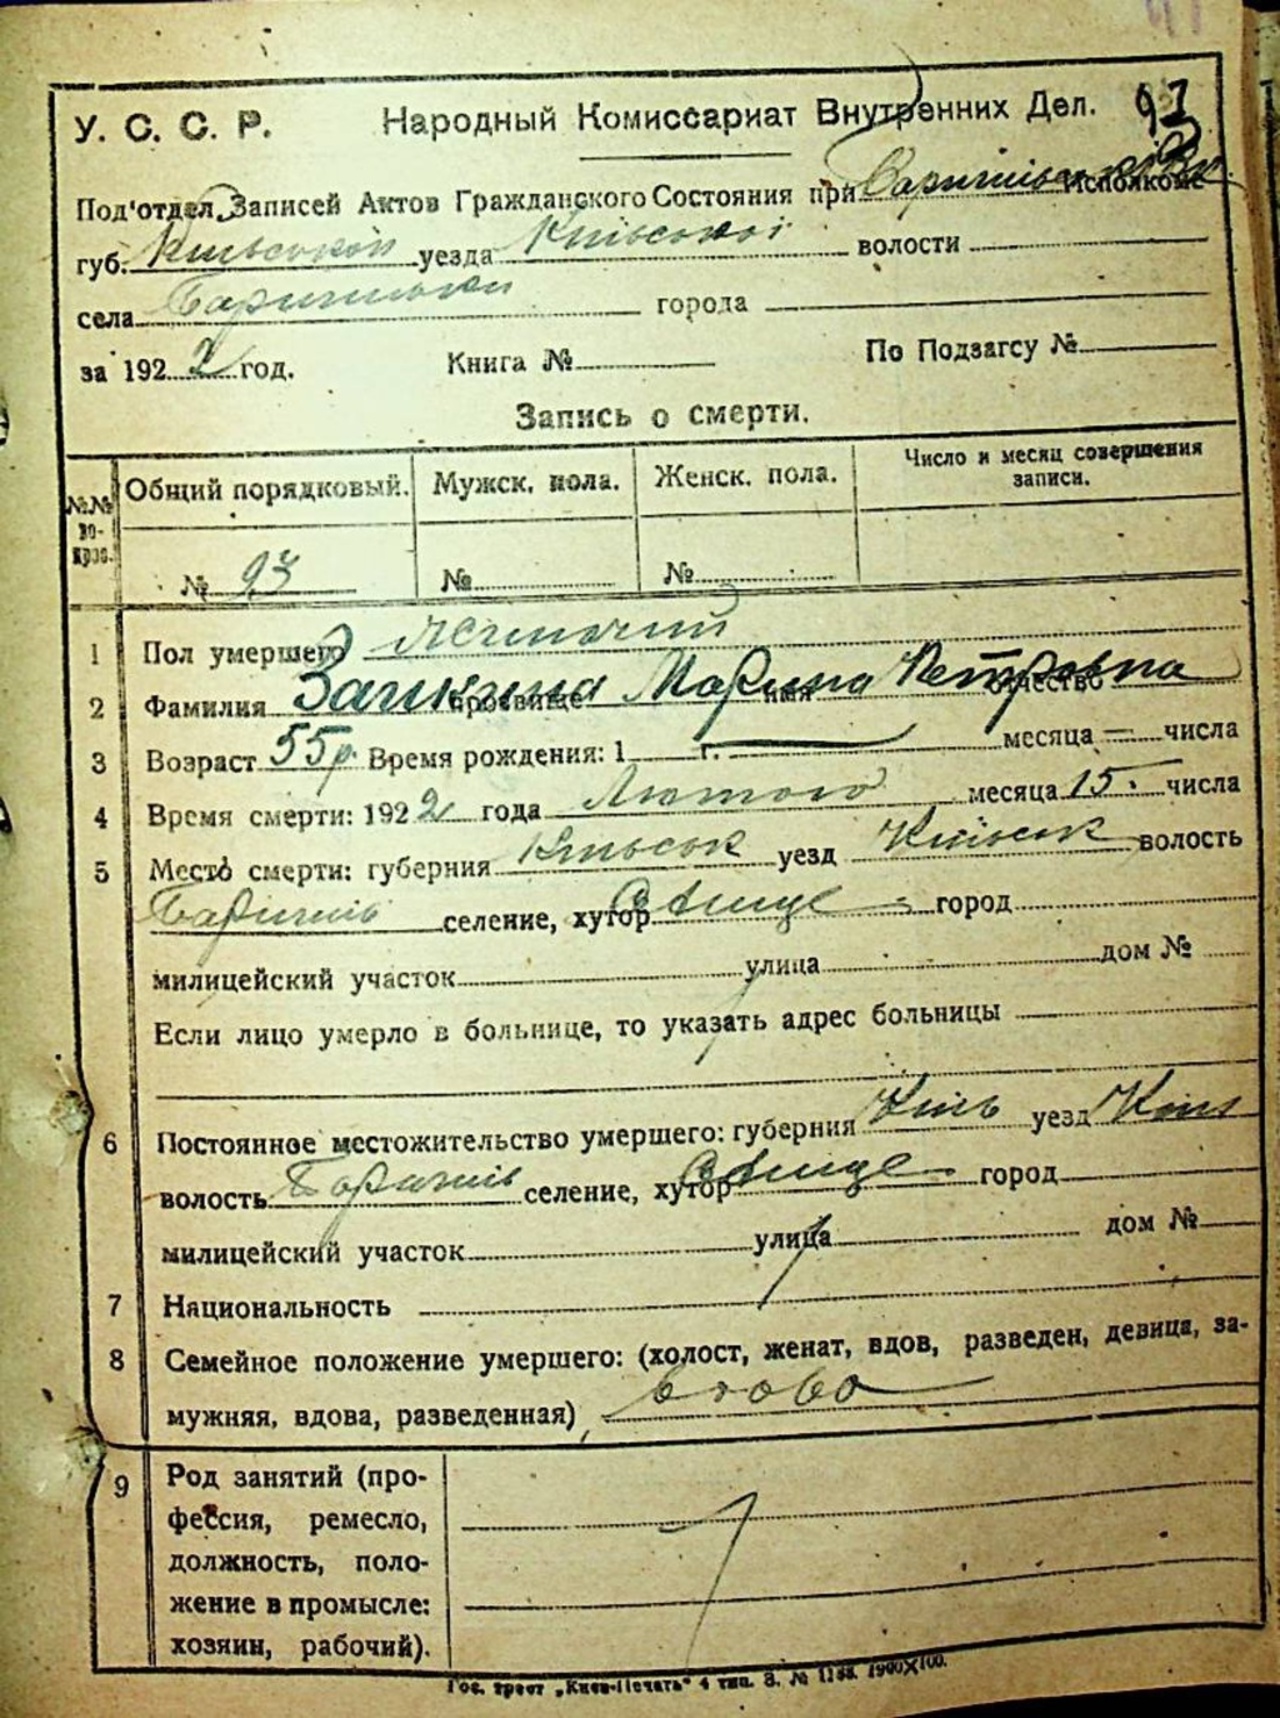 У. С. С. Р. Народный Комиссариат Внутренних Дел. 93
Под'отдел Записей Актов Гражданского Состояния при Исполкоме
губ. Київської уезда Київської волости
села города
за 1922 год. Книга № По Подзагсу №
Запись о смерти.
№№ во-прос. Общий порядковый. Мужск. пола. Женск. пола. Число и месяц совершения записи.
№ 93 № №
1 Пол умершего Жіночий
2 Фамилия прозвище Марина имя Петровна отчество
3 Возраст 55 р. Время рождения: 1 г. месяца — числа
4 Время смерти: 1922 года Лютого месяца 15. числа
5 Место смерти: губерния Київськ уезд Київськ волость
селение, хутор город
милицейский участок улица дом №
Если лицо умерло в больнице, то указать адрес больницы
6 Постоянное местожительство умершего: губерния Київ уезд Київ
волость селение, хутор город
милицейский участок улица дом №
7 Национальность
8 Семейное положение умершего: (холост, женат, вдов, разведен, девица, за-
мужняя, вдова, разведенная) вдова
9 Род занятий (про-
фессия, ремесло,
должность, поло-
жение в промысле:
хозяин, рабочий).
Гос. трест „Киев-Печать" 4 тип. З. № 1188. 1900X100.